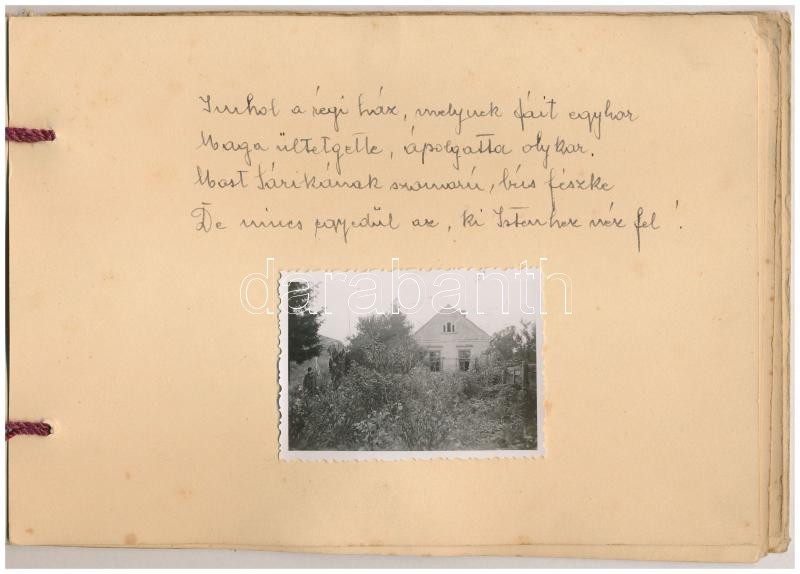 Imhol a régi ház, melynek fáit egykor
Maga ültetgette, ápolgatta olykor.
Most Sárikának szomorú, bús fészke
De nincs egyedül az, ki Istenhez néz fel!
darabanth